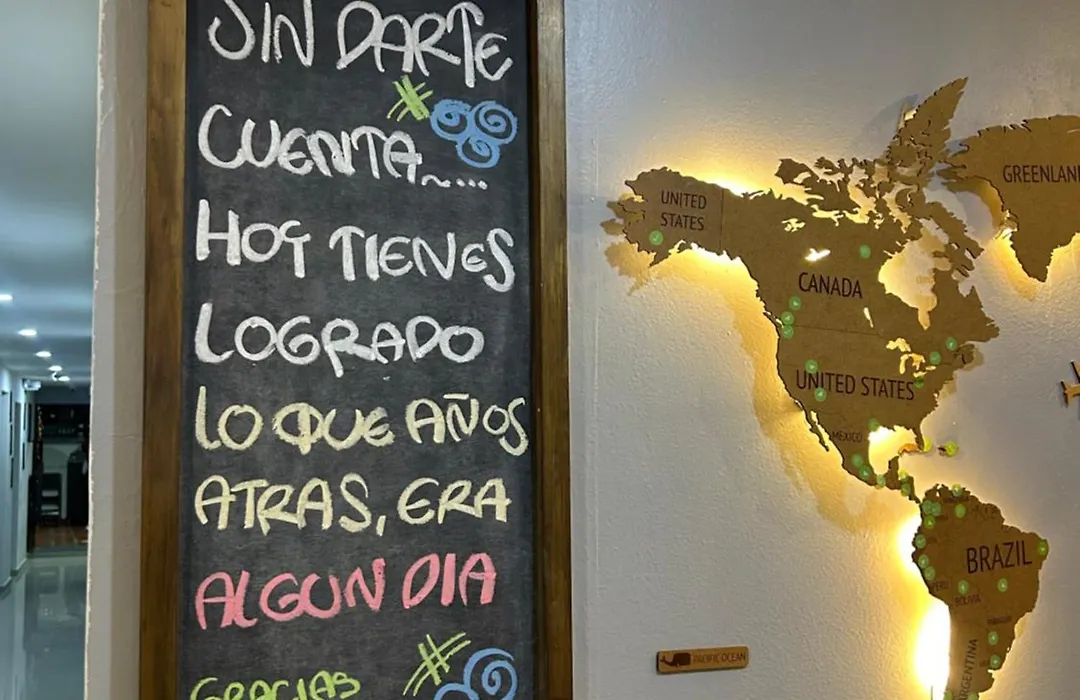 SIN DARTE
CUENTA~...
HOY TIENES
LOGRADO
LO QUE AÑOS
ATRAS, ERA
ALGUN DIA
GRACIAS
GREENLAND
UNITED
STATES
CANADA
UNITED STATES
MEXICO
BRAZIL
PERU
BOLIVIA
ARGENTINA
PACIFIC OCEAN